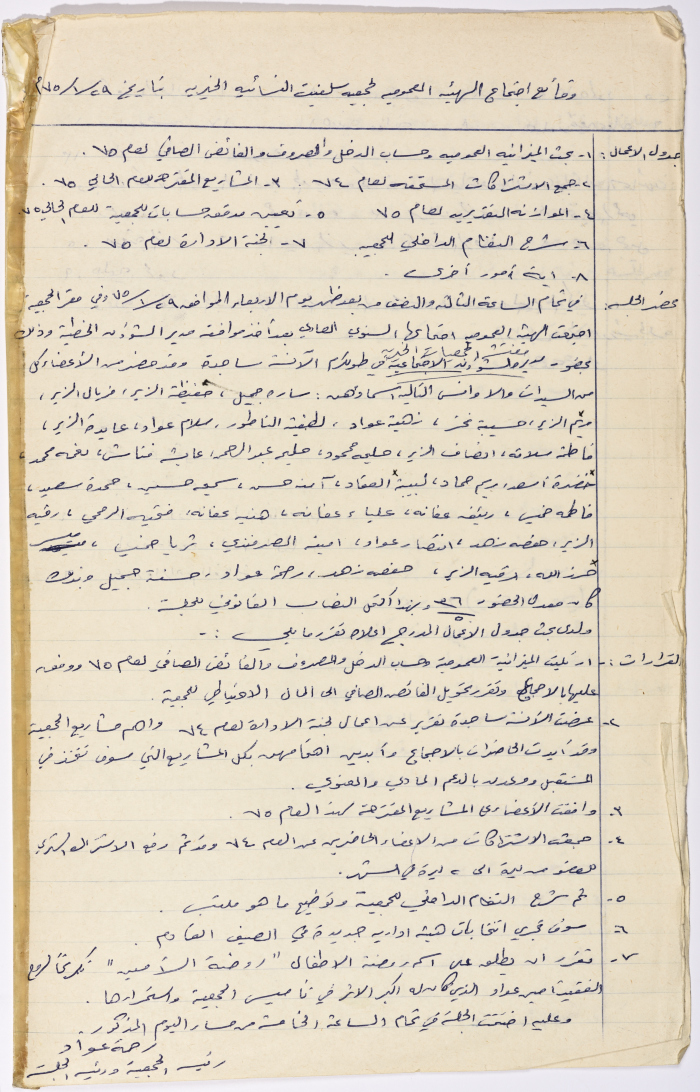 وقائع اجتماع الهيئه العموميه لجمعيه سلفيت النسائيه الخيريه بتاريخ ٢٩/١/٧٥م
جدول الاعمال: ١- بحث الميزانيه العموميه وحساب الدخل والمصروف والفائض الصافي لعام ٧٥
٢- جمع الاشتراكات المستحقه لعام ٧٤. ٣- المشاريع المقترحه للعام الحالي ٧٥.
٤- الموازنه التقديريه لعام ٧٥ ٥- تعيين مدقق حسابات للجمعية للعام الحالي ٧٥
٦- شرح النظام الداخلي للجمعيه ٧- لجنة الادارة لعام ٧٥.
٨- اية أمور أخرى.
محضر الجلسه: في تمام الساعة الثالثه والنصف من بعد ظهر يوم الاربعاء الموافق ٢٩/١/٧٥ وفي مقر الجمعية
اجتمعت الهيئة العموميه اجتماعها السنوي العادي بعد أخذ موافقة مدير الشؤون الخطية وذلك
بحضور الاجتماعية طولكرم الآنسة ساجدة وقد حضر من الأعضاء كل
من السيدات والاوانس التالية اسماؤهن: ساره جميل، حفيظة الزير، فريال الزير،
مريم الزير، حسيبة ، نزهية عواد، لطفية الناطور، سلام عواد، عايدة الزير،
فاطمه سلامه، انصاف الزير، حليمه محمود، حليمه عبد الرحمن، عايشه فتاش، نعمه محمد،
خضرة أسعد، مريم حماد، لبيبة العقاد، آمنه حسن، سميحه حسين، حمدة سعيد،
فاطمه ، رئيفه عفانه، علياء عفانه، هنيه عفانه، فتحيه الرحمي، رقيه
الزير، حفصه زهد، انتصار عواد، امينه المصرفندي، ثريا ،
حرز الله، رقيه الزير، حفصه زهد، رحمة عواد، حسنة جميل وبذلك
كان معدل الحضور ٣٦ وبهذا اكتمل النصاب القانوني للجلسة.
ولدى بحث جدول الاعمال المدرج اعلاه تقرر ما يلي:-
القرارات:- ١- تليت الميزانية العمومية وحساب الدخل والمصروف والفائض الصافي لعام ٧٥ ووفق
عليها بالاجماع وتقرر تحويل الفائض الصافي الى المال الاحتياطي للجمعية.
٢- عرضت الآنسة ساجدة تقرير عن اعمال لجنة الادارة لعام ٧٤ واهم مشاريع الجمعية
وقد أيدت الحاضرات بالاجماع وأبدين اهتمامهن بكل المشاريع التي سوف تنفذ في
المستقبل ووعدن بالدعم المادي والمعنوي.
٣- وافقت الأعضاء على المشاريع المقترحة لهذا العام ٧٥.
٤- جمعت الاشتراكات من الاعضاء الحاضرين عن العام ٧٤ وقد تم رفع الاشتراك الشهري
للعضو من ليرة الى ٢ ليرة في الشهر.
٥- تم شرح النظام الداخلي للجمعية وتوضيح ما هو ملتبس.
٦- سوف تجري انتخابات هيئة ادارية جديدة في الصيف القادم.
٧- تقرر ان يطلق على اسم روضة الاطفال "روضة الأمين" تكريماً لروح
الفقيد امين عواد الذي كان له اكبر الاثر في تأسيس الجمعية واستمرارها.
وعليه اختتمت الجلسة في تمام الساعة الخامسة من مساء اليوم المذكور.
رحمة عواد
رئيسة الجمعية ورئيسة الجلسة